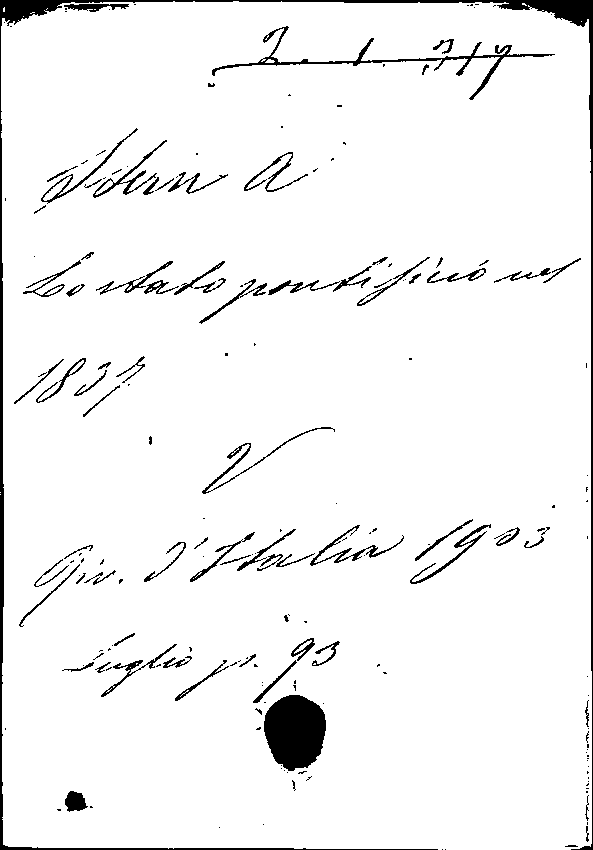 2. 1. 317
Stern A
Lo stato pontificio nel
1837
V
Riv. d'Italia 1903
Luglio p. 93